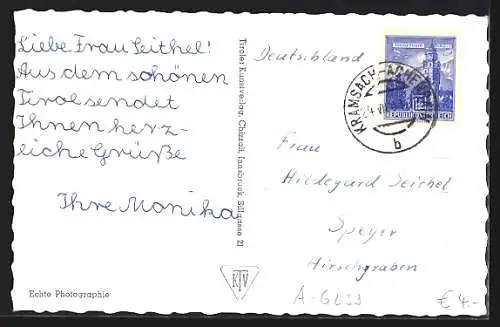 Liebe Frau Seithel!
Aus dem schönen
Tirol sendet
Ihnen herz-
liche Grüße
Ihre Monika
Echte Photographie
Tiroler Kunstverlag, Chizzali, Innsbruck, Sillgasse 21
KTV
Deutschland
KRAMSACH-ACHENRAIN
b
REPUBLIK ÖSTERREICH
Frau
Hildegard Seithel
Speyer
Hirschgraben
€ 4.-